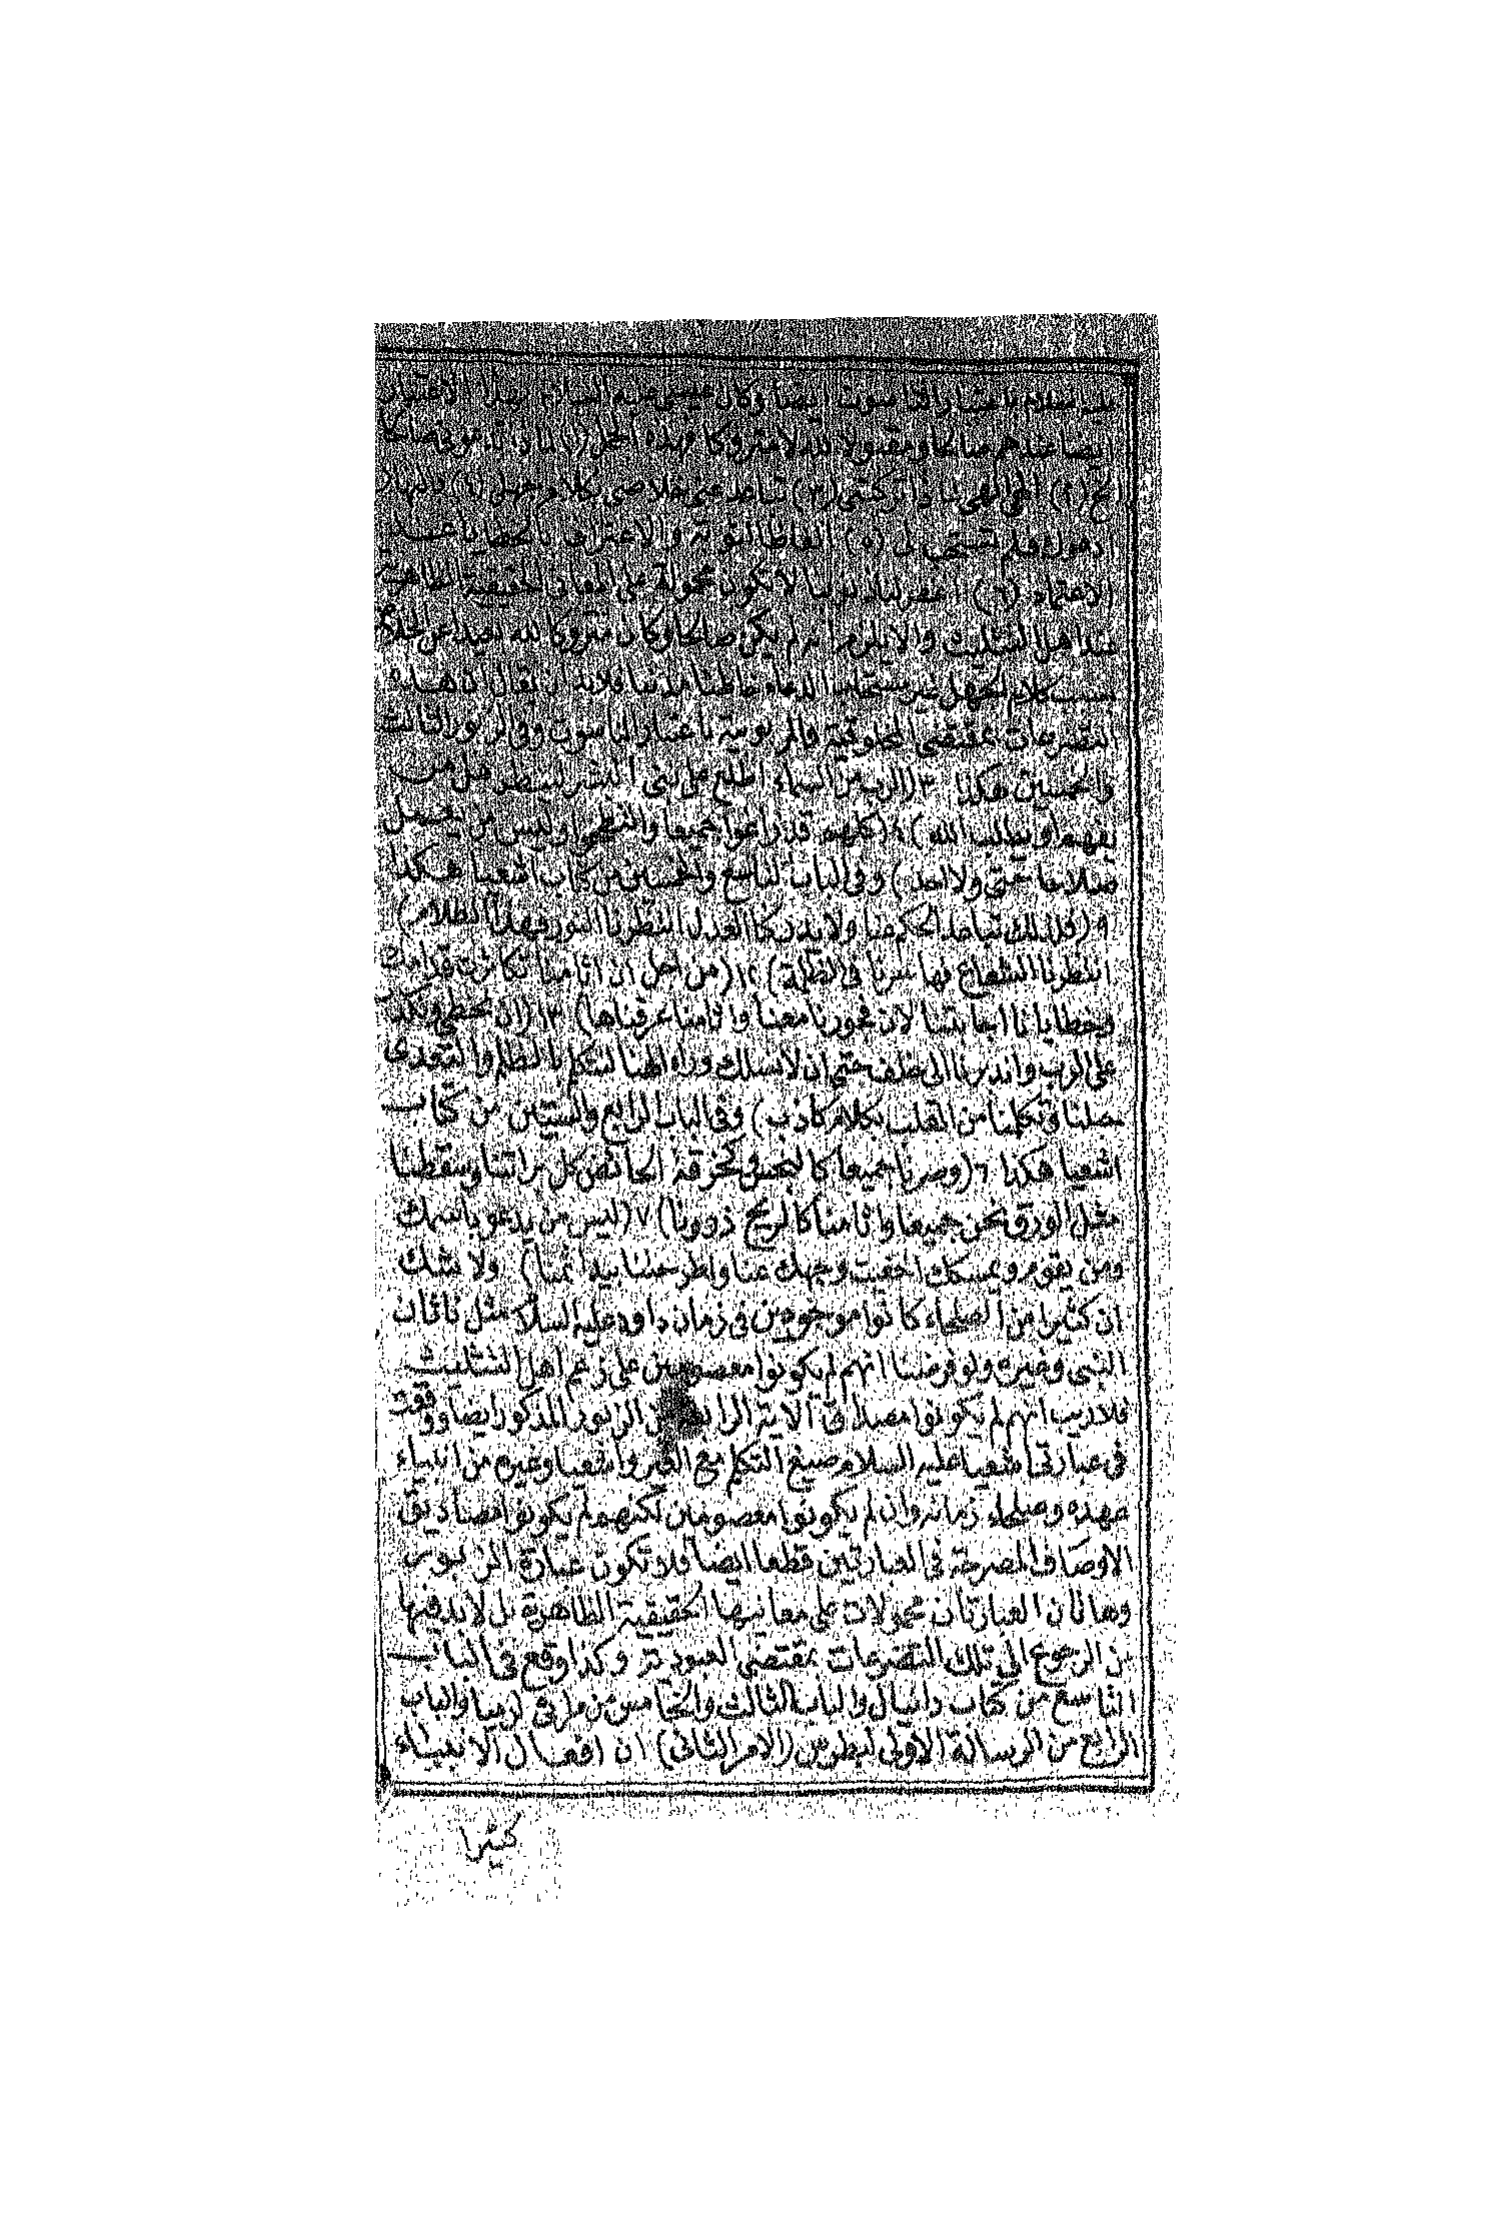 عليه السلام باعتبار الناسوت ايضا وكان عيسى عليه السلام بهذا الاعتبار
ايضا عندهم صالحا ومقبولا لله لا متروكا فهذه الجمل (١) لماذا تدعونى صالحا
الخ (٢) الهى الهى لماذا تركتنى (٣) تباعد عنى خلاصى بكلام جهلى (٤)
ادعوك فلم تستجب لى (٥) الفاظ التوبة والاعتراف بالخطايا عند
الاعتماد (٦) اغفر لنا ذنوبنا لا تكون محمولة على المعانى الحقيقية الظاهرة
عند اهل التثليث والا يلزم انه لم يكن صالحا وكان متروكا لله بعيدا عن الخلاص
بسبب كلام الجهل غير مستجاب الدعاء خاطئا مذنبا فلا بد ان يقال ان هذه
التضرعات بمقتضى المخلوقية والمربوبية باعتبار الناسوت وفى الزبور الثالث
والخمسين هكذا ٣ (الرب من السماء اطلع على بنى البشر لينظر هل من
يفهم او يطلب الله) ٤ (كلهم قد زاغوا جميعا والتطخوا وليس من يعمل
صلاحا حتى ولا احد) وفى الباب التاسع والخمسين من كتاب اشعيا هكذا
٩ (فلذلك تباعد الحكم عنا ولا يدركنا العدل انتظرنا النور فهذا الظلام)
انتظرنا الشعاع فها سرنا فى الظلمة) ١٢ (من اجل ان اثامنا تكاثرت قدامك
وخطايانا اجابتنا لان فجورنا معنا واثامنا عرفناها) ١٣ (ان نخطى ونكذب
على الرب واندرنا الى خلف حتى ان لا نسلك وراء الهنا لنتكلم بالظلم والتعدى
حبلنا وتكلمنا من القلب بكلام كاذب) وفى الباب الرابع والستين من كتاب
اشعيا هكذا ٦ (وصرنا جميعا كالنجس وكخرقة الحائض كل براتنا وسقطنا
مثل الورق نحن جميعا واثامنا كالريح ذرونا) ٧ (ليس من يدعو باسمك
ومن يقوم ويمسكك اخفيت وجهك عنا واطرحتنا بيد اثمنا) ولا شك
ان كثيرا من الصلحاء كانوا موجودين فى زمان داود عليه السلام مثل ناثان
النبى وغيره ولو فرضنا انهم لم يكونوا معصومين على زعم اهل التثليث
فلا ريب انهم لم يكونوا مصداق الاية الرابعة من الزبور المذكور ايضا ووقعت
فى عبارتى اشعيا عليه السلام صيغ التكلم مع الغير واشعيا وغيره من انبياء
عهده وصلحاء زمانه وان لم يكونوا معصومين لكنهم لم يكونوا مصاديق
الاوصاف المصرحة فى العبارتين قطعا ايضا فلا تكون عبارة الزبور
وهاتان العبارتان محمولات على معانيها الحقيقية الظاهرة بل لا بد فيها
من الرجوع الى تلك التضرعات بمقتضى العبودية وكذا وقع فى الباب
التاسع من كتاب دانيال والباب الثالث والخامس من مراثى ارميا والباب
الرابع من الرسالة الاولى لبطرس (الامر الثانى) ان افعال الانبياء
كثيرا